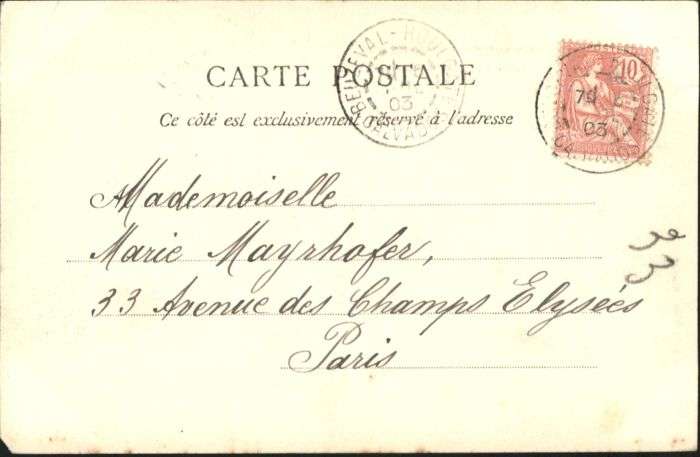 CARTE POSTALE
Ce côté est exclusivement réservé à l'adresse
BEUZEVAL-HOULGATE
03
CALVADOS
10
7E
03
Mademoiselle
Marie Mayrhofer,
33 Avenue des Champs Elysées
Paris
33